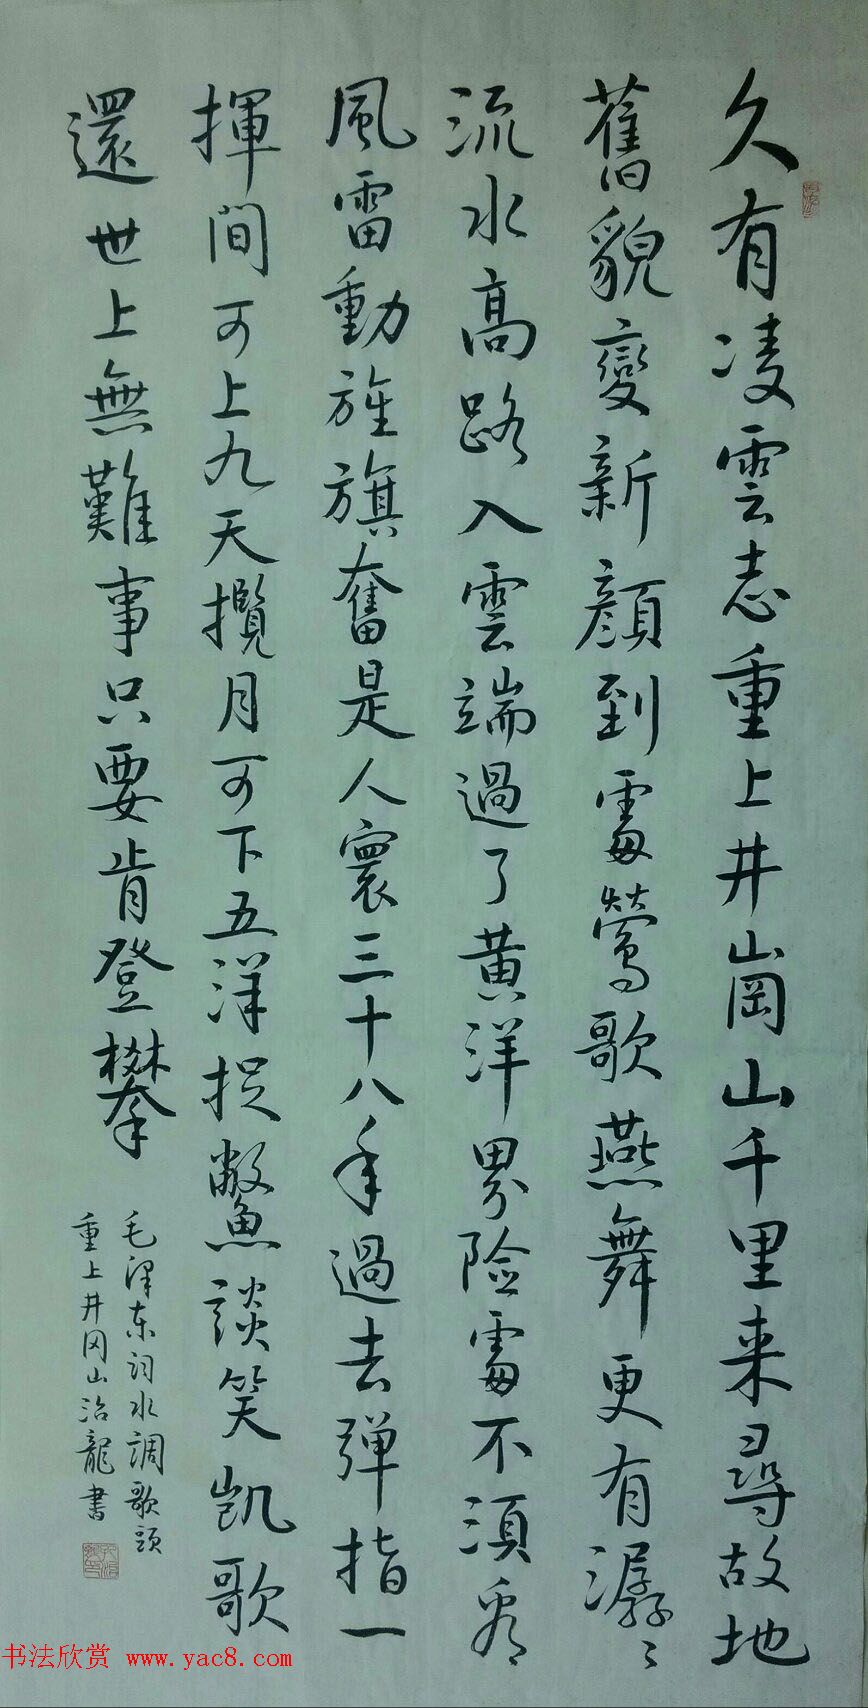 久有凌雲志重上井崗山千里来尋故地
舊貌變新顔到處鶯歌燕舞更有潺〻
流水高路入雲端過了黄洋界险處不須看
風雷動旌旗奮是人寰三十八年過去弹指一
揮間可上九天攬月可下五洋捉鱉談笑凱歌
還世上無難事只要肯登攀
毛澤东词水調歌頭
重上井冈山治龍書
书法欣赏 www.yac8.com